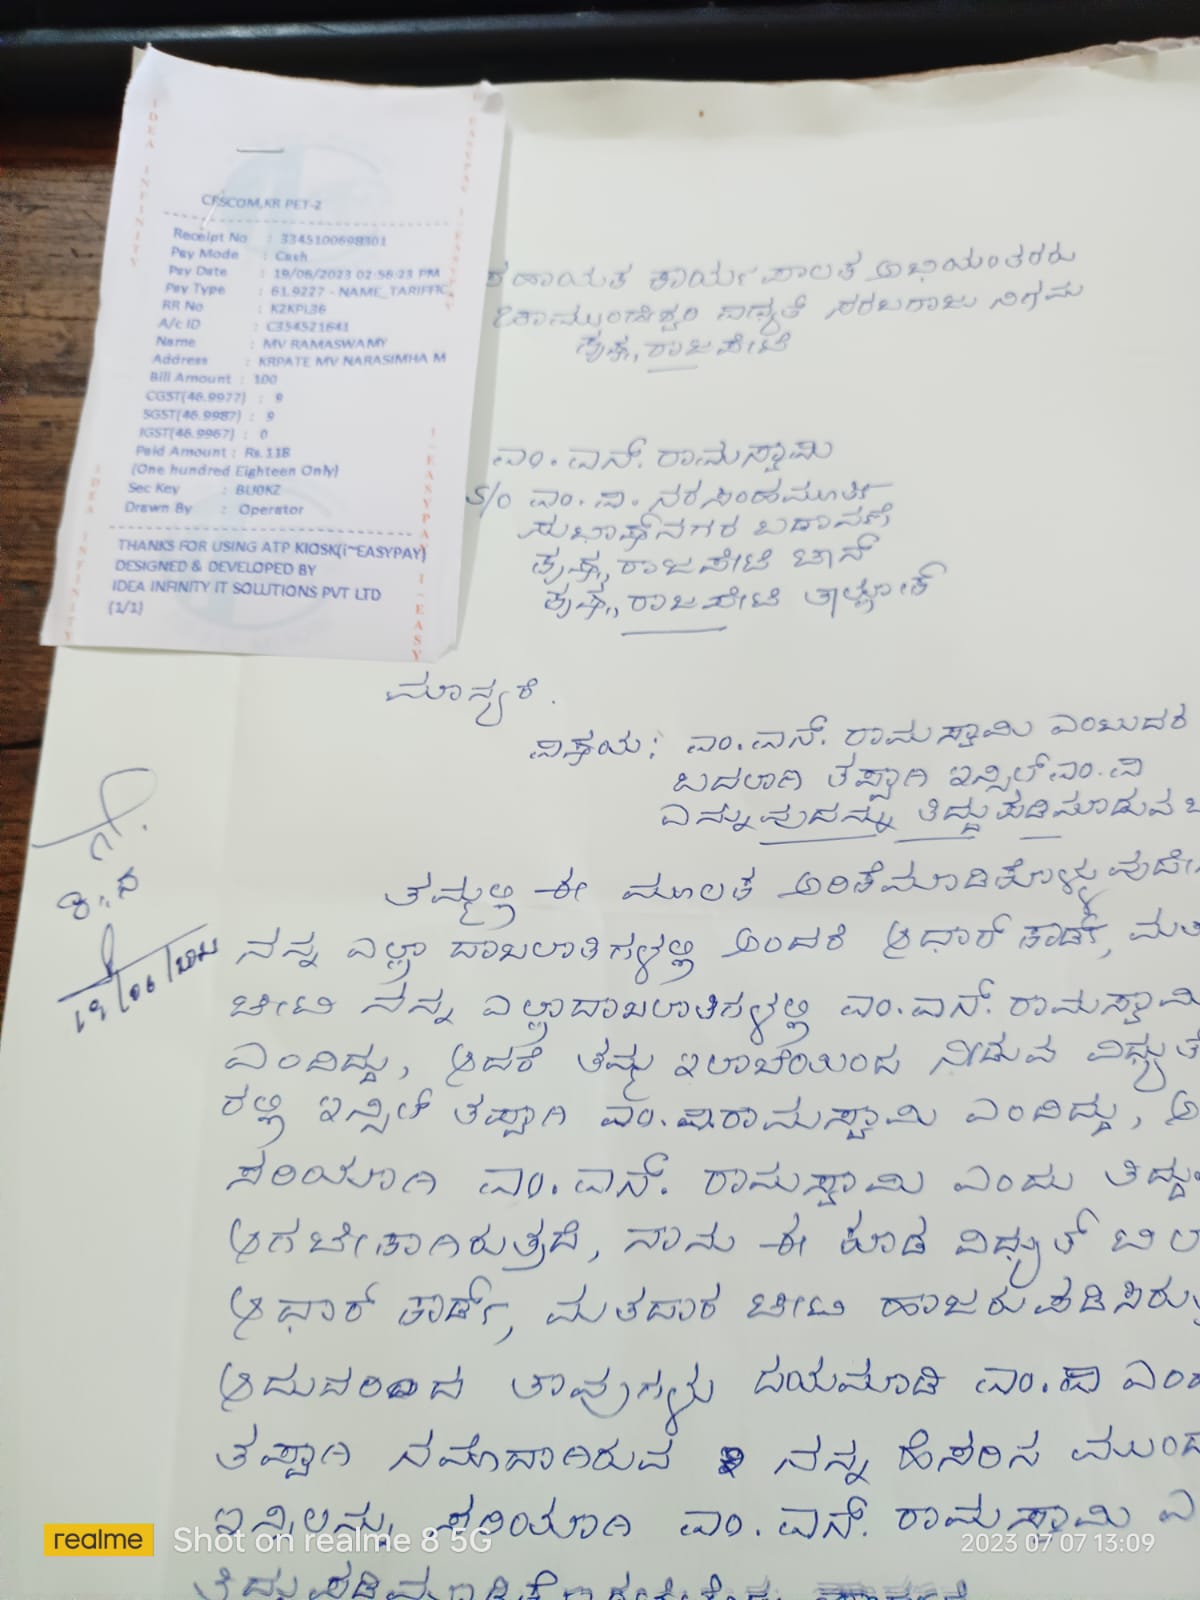 CESCOM,KR PET-2
Receipt No : 3345100698301
Pay Mode : Cash
Pay Date : 19/06/2023 02:56:23 PM
Pay Type : 61.9227 - NAME_TARIFFIC
RR No : K2KPL36
A/c ID : C354521641
Name : MV RAMASWAMY
Address : KRPATE MV NARASIMHA M
Bill Amount : 100
CGST(46.9977) : 9
SGST(46.9987) : 9
IGST(46.9967) : 0
Paid Amount : Rs.118
(One hundred Eighteen Only)
Sec Key : BU0KZ
Drawn By : Operator
THANKS FOR USING ATP KIOSK(i~EASYPAY)
DESIGNED & DEVELOPED BY
IDEA INFINITY IT SOLUTIONS PVT LTD
(1/1)
IDEA INFINITY
ಸಹಾಯಕ ಕಾರ್ಯಪಾಲಕ ಅಭಿಯಂತರರು
ಚಾಮುಂಡೇಶ್ವರಿ ವಿದ್ಯುತ್ ಸರಬರಾಜು ನಿಗಮ
ಕೃಷ್ಣರಾಜಪೇಟೆ
ಎಂ.ಎನ್. ರಾಮಸ್ವಾಮಿ
S/o ಎಂ.ವಿ. ನರಸಿಂಹಮೂರ್ತಿ
ಸುಭಾಷ್‌ನಗರ ಬಡಾವಣೆ
ಕೃಷ್ಣರಾಜಪೇಟೆ ಟೌನ್
ಕೃಷ್ಣರಾಜಪೇಟೆ ತಾಲ್ಲೂಕ್
ಮಾನ್ಯರೆ.
ವಿಷಯ: ಎಂ.ಎನ್. ರಾಮಸ್ವಾಮಿ ಎಂಬುದರ
ಬದಲಾಗಿ ತಪ್ಪಾಗಿ ಇನ್ಸಿಲ್ ಎಂ.ವಿ
ಎನ್ನುವುದನ್ನು ತಿದ್ದುಪಡಿಮಾಡುವ ಬ
ತಮ್ಮಲ್ಲಿ ಈ ಮೂಲಕ ಅರಿಕೆಮಾಡಿಕೊಳ್ಳುವುದೇ
ನನ್ನ ಎಲ್ಲಾ ದಾಖಲಾತಿಗಳಲ್ಲಿ ಅಂದರೆ ಆಧಾರ್ ಕಾರ್ಡ್, ಮತ
ಚೀಟಿ ನನ್ನ ಎಲ್ಲಾದಾಖಲಾತಿಗಳಲ್ಲಿ ಎಂ.ಎನ್. ರಾಮಸ್ವಾಮಿ
ಎಂದಿದ್ದು, ಆದರೆ ತಮ್ಮ ಇಲಾಖೆಯಿಂದ ನೀಡುವ ವಿದ್ಯುತ್
ರಲ್ಲಿ ಇನ್ಸಿಲ್ ತಪ್ಪಾಗಿ ಎಂ.ವಿ.ರಾಮಸ್ವಾಮಿ ಎಂದಿದ್ದು, ಅ
ಸರಿಯಾಗಿ ಎಂ.ಎನ್. ರಾಮಸ್ವಾಮಿ ಎಂದು ತಿದ್ದು
ಆಗಬೇಕಾಗಿರುತ್ತದೆ, ನಾನು ಈ ಕೂಡ ವಿದ್ಯುತ್ ಬಿಲ
ಆಧಾರ್ ಕಾರ್ಡ್, ಮತದಾರ ಚೀಟಿ ಹಾಜರುಪಡಿಸಿರು
ಆದುದರಿಂದ ತಾವುಗಳು ದಯಮಾಡಿ ಎಂ.ವಿ ಎಂ
ತಪ್ಪಾಗಿ ನಮೋದಾಗಿರುವ ನನ್ನ ಹೆಸರಿನ ಮುಂದ
ಇನ್ಸಿಲನ್ನು ಸರಿಯಾಗಿ ಎಂ.ಎನ್. ರಾಮಸ್ವಾಮಿ ಎ
19/06/2023
realme Shot on realme 8 5G
2023 07 07 13:09